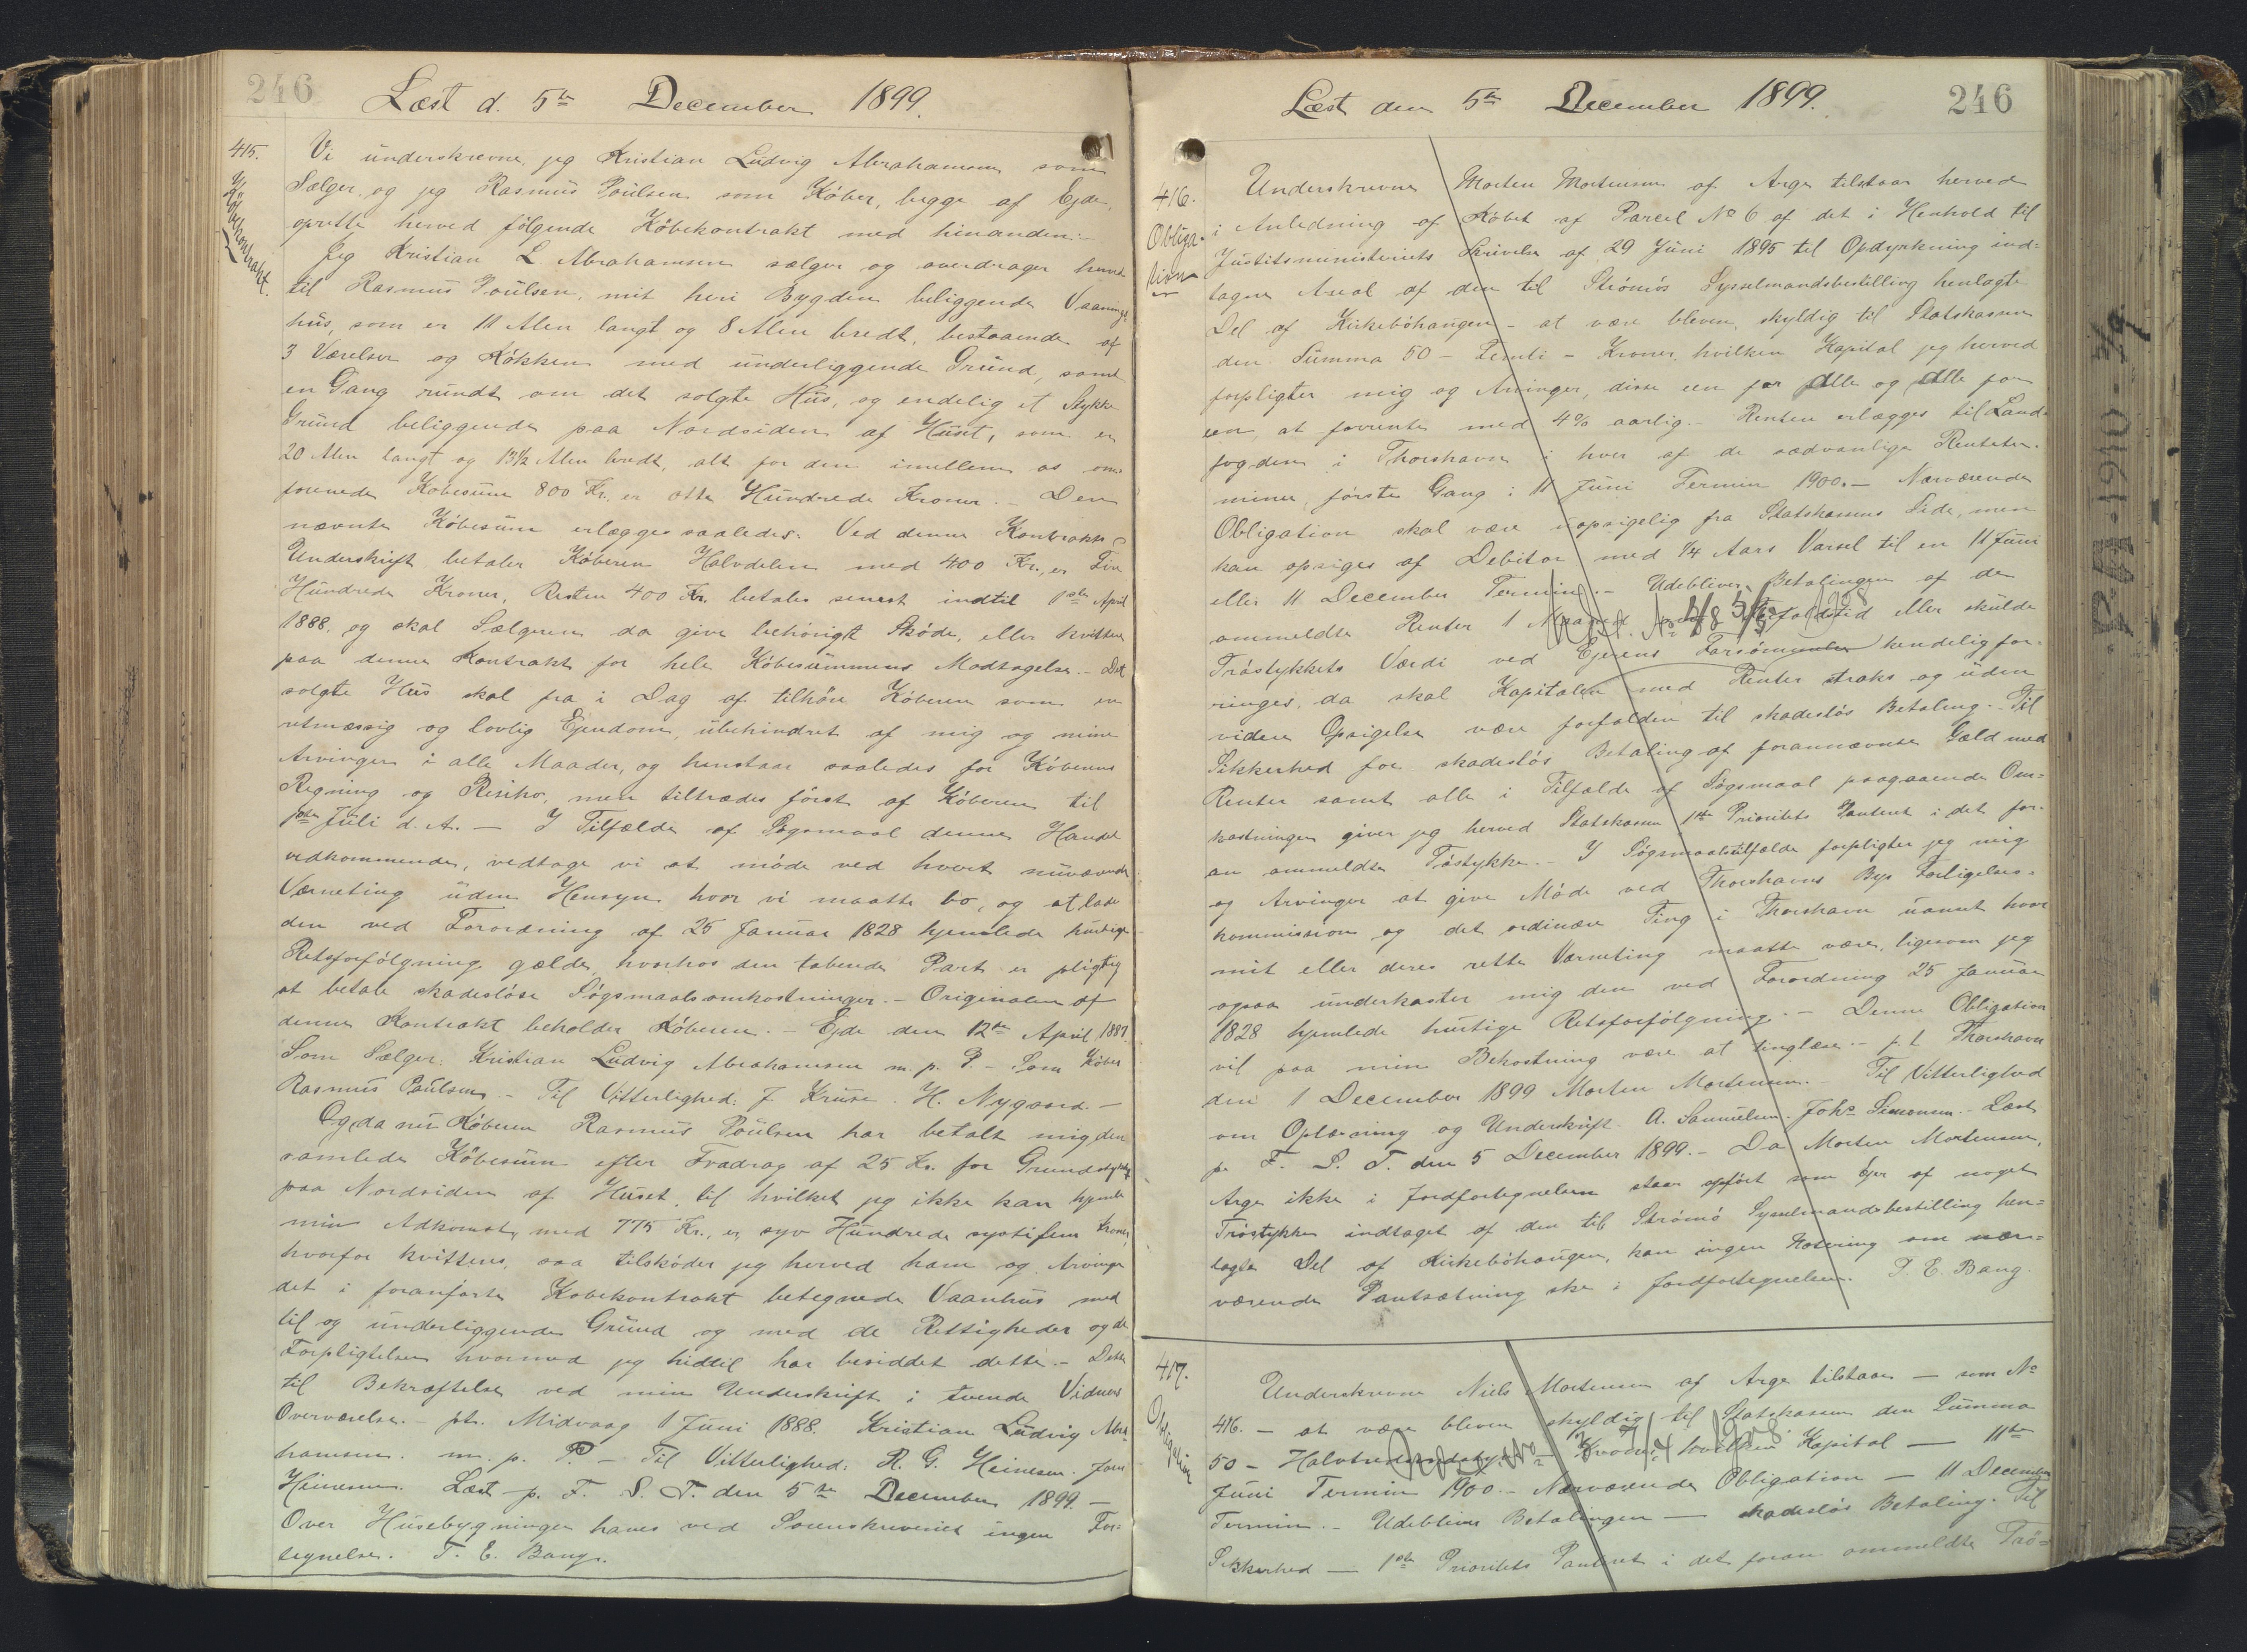 246
Læst d. 5te December 1899.
415.
Købekontrakt.
Vi underskrevne, jeg Kristian Ludvig Abrahamsen som
Sælger, og jeg Rasmus Poulsen som Køber, begge af Ejde,
oprette herved følgende Købekontrakt med hinanden:-
Jeg Kristian L Abrahamsen sælger og overdrager herved
til Rasmus Poulsen, mit heri Bygden beliggende Vaanings
hus, som er 11 Alen langt og 8 Alen bredt, bestaaende af
3 Værelser og Køkken med underliggende Grund, samt
en Gang rundt om det solgte Hus, og endelig et Stykke
Grund beliggende paa Nordsiden af Huset, som er
20 Alen langt og 13½ Alen bredt, alt for den imellem os om
forenede Købesum 800 Kr. er otte Hundrede Kroner. - Den
nævnte Købesum erlægges saaledes: Ved denne Kontrakts
Underskrift betaler Køberen Halvdelen med 400 Kr., er Fire
Hundrede Kroner, Resten 400 Kr. betales senest indtil 1ste April
1888, og skal Sælgeren da give behørigt Skøde, eller kvittere
paa denne Kontrakt for hele Købesummens Modtagelse. - Det
solgte Hus skal fra i Dag af tilhøre Køberen som en
retmæssig og lovlig Ejendom, ubehindret af mig og mine
Arvinger i alle Maader, og henstaar saaledes for Køberens
Regning og Risiko, men tiltrædes først af Køberen til
1ste Juli d. A. - I Tilfælde af Søgsmaal denne Handel
vedkommende, vedtage vi at møde ved hvert nuværende
Værneting uden Hensyn hvor vi maatte bo, og at lade
den ved Forordning af 25 Januar 1828 hjemlede hurtige
Retsforfølgning gælde, hvorhos den tabende Part er pligtig
at betale skadesløse Søgsmaalsomkostninger. - Originalen af
denne Kontrakt beholder Køberen. - Ejde den 12te April 1887.
Som Sælger: Kristian Ludvig Abrahamsen m. p. P. - Som Køber
Rasmus Paulsen. - Til Vitterlighed: J. Kruse. H. Nygaard. -
Og da nu Køberen Rasmus Poulsen har betalt mig den
samlede Købesum efter Fradrag af 25 Kr. for Grundstykket
paa Nordsiden af Huset, til hvilket jeg ikke kan hjemle
min Adkomst, med 775 Kr., er syv Hundrede syvti fem Kroner,
hvorfor kvitteres, saa tilskøder jeg herved ham og Arvinger
det i foranførte Købekontrakt betegnede Vaanhus med
til og underliggende Grund og med de Rettigheder og de
Forpligtelser hvormed jeg hidtil har besiddet dette. - Dette
til Bekræftelse ved min Underskrift i tvende Vidners
Overværelse. - pt. Midvaag 1 Juni 1888. Kristian Ludvig Abra
hamsen. m. p. P. - Til Vitterlighed: R. G. Heinesen.
Heinesen. Læst p. F. S. T. den 5te December 1899. -
Over Husebygninger haves ved Sorenskriveriet ingen For-
tegnelse. T. E. Bang.
Læst den 5te December 1899.
246
416.
Obliga-
tion
Underskrevne Morten Mortensen af Arge tilstaar herved
i Anledning af Købet af Parcel No 6 af det i Henhold til
Justitsministeriets Skrivelse af 29 Juni 1895 til Opdyrkning ind-
tagne Areal af den til Strömös Sysselmandsbestilling henlagte
Del af Kirkebøhaugen - at være bleven skyldig til Statskassen
den Summa 50 - Femti - Kroner, hvilken Kapital jeg herved
forpligter mig og Arvinger, disse een for Alle og Alle for
een, at forrente med 4% aarlig. - Renten erlægges til Land-
fogden i Thorshavn i hver af de sædvanlige Renteter-
miner, første Gang i 11 Juni Termin 1900. - Nærværende
Obligation skal være uopsigelig fra Statskassens Side, men
kan opsiges af Debitor med ¼ Aars Varsel til en 11 Juni
eller 11 December Termin. - Udebliver Betalingen af de
ommeldte Renter 1 Maaned over Forfaldstid eller skulde
Trøstykkets Værdi ved Ejerens Forsømmelse kendelig for-
ringes, da skal Kapitalen med Renter straks og uden
videre Opsigelse være forfalden til skadesløs Betaling. - Til
Sikkerhed for skadesløs Betaling af forannævnte Gæld med
Renter samt alle i Tilfælde af Søgsmaal paagaaende Om-
kostninger giver jeg herved Statskassen 1ste Prioritets Panteret i det for-
an ommeldte Trøstykke. - I Søgsmaalstilfælde forpligter jeg mig
og Arvinger at give Møde ved Thorshavns Bys Forligelses-
kommission og det ordinære Ting i Thorshavn uanset hvor
mit eller deres rette Værneting maatte være, ligesom jeg
ogsaa underkaster mig den ved Forordning 25 Januar
1828 hjemlede hurtige Retsforfølgning. - Denne Obligation
vil paa min Bekostning være at tinglæse. - p. t. Thorshavn
den 1 December 1899 Morten Mortensen. - Til Vitterlighed
om Oplæsning og Underskrift. A. Samuelsen. Johs Simonsen. - Læst
p. F. S. T. den 5 December 1899. - Da Morten Mortensen,
Arge ikke i Jordfortegnelsen staar opført som Ejer af noget
Trøstykke indtaget af den til Strømø Sysselmandsbestilling hen-
lagte Del af Kirkebøhaugen, kan ingen Notering om nær-
værende Pantsætning ske i Jordfortegnelsen. T. E. Bang.
417.
Obligation
Underskrevne Niels Mortensen af Arge tilstaar - som No
416. - at være bleven skyldig til Statskassen den Summa
50 - Halvtredsindstyve - Kroner, hvilken Kapital - 11te
Juni Termin 1900. - Nærværende Obligation - 11 December
Termin. - Udebliver Betalingen - skadesløs Betaling. Til
Sikkerhed - 1ste Prioritets Panteret i det foran ommeldte Trø-